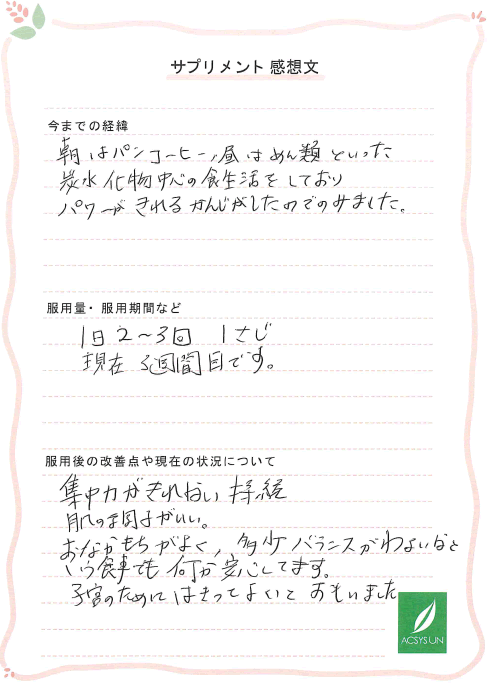 サプリメント 感想文
今までの経緯
朝はパンコーヒー、昼はめん類といった
炭水化物中心の食生活をしており
パワーがきれるかんじがしたのでのみました。
服用量・服用期間など
1日2〜3回 1さじ
現在 3週間目です。
服用後の改善点や現在の状況について
集中力がきれない 持続
肌の調子がいい。
おなかもちがよく、多少バランスがわるいなと
いう食事でも何か安心してます。
子宮のためにはさってよいと おもいました
ACSYSUN